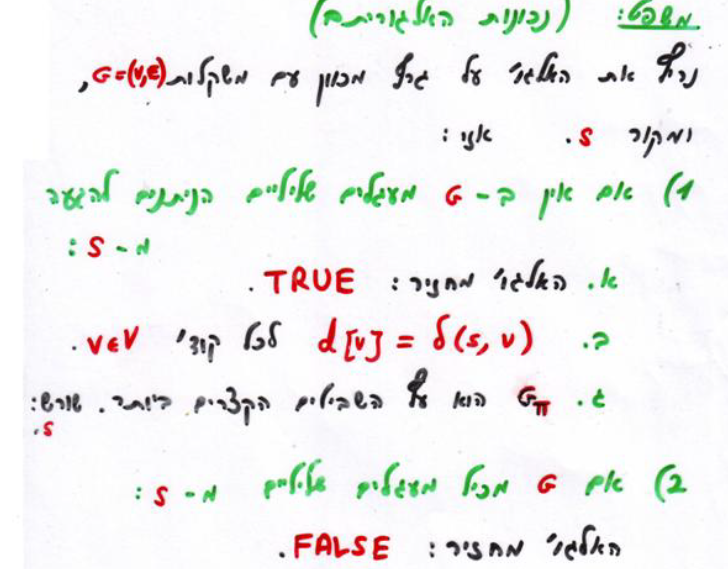 משפט: (נכונות האלגוריתם)
נריץ את האלגו' על גרף מכוון עם משקלות G=(V,E),
ומקור S. אזי:
1) אם אין ב-G מעגלים שליליים הניתנים להגעה
מ-S:
א. האלגו' מחזיר: TRUE.
ב. d[v] = δ(s,v) לכל קוד' v∈V.
ג. Gπ הוא עץ השבילים הקצרים ביותר. שורש:
S.
2) אם G מכיל מעגלים שליליים מ-S:
האלגו' מחזיר: FALSE.